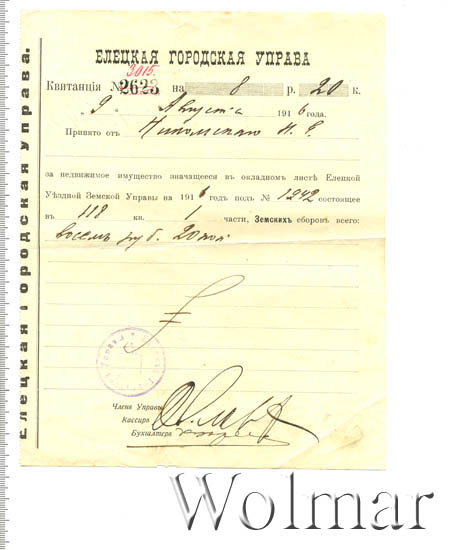 ЕЛЕЦКАЯ ГОРОДСКАЯ УПРАВА
3015.
Квитанція № 2623 на 8 р. 20 к.
9 Августа 1916 года.
Принято от Никольскаго Н. Е.
за недвижимое имущество значащееся в окладномъ листѣ Елецкой
Уѣздной Земской Управы на 1916 годъ подъ № 1242 состоящее
въ 118 кв. 1 части, Земскихъ сборовъ всего:
восемь руб. 20 коп
Членъ Управы
Кассиръ
Бухгалтеръ
Елецкая Городская Управа.
Wolmar